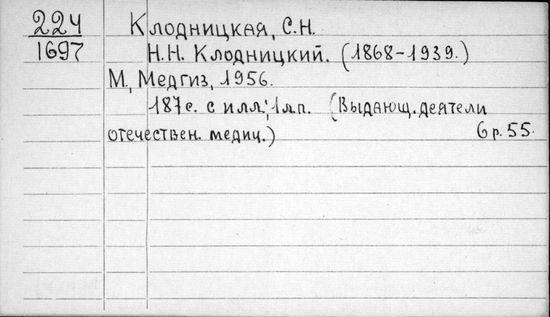 224 Клодницкая, С.Н.
1697 Н.Н. Клодницкий. (1868-1939.)
М., Медгиз, 1956.
187с. с илл.; 1 л.п. (Выдающ. деятели
отечествен. медиц.) 6р. 55.